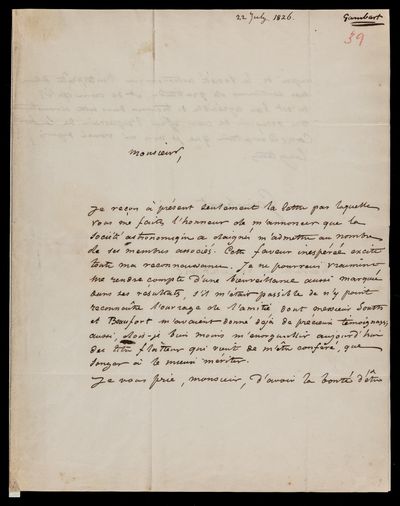 22 July 1826.
Gambart
39
Monsieur,
Je reçois à présent seulement la lettre par laquelle
vous me faites l'honneur de m'annoncer que la
Société astronomique a daigné m'admettre au nombre
de ses membres associés. Cette faveur inespérée excite
toute ma reconnaissance. Je ne pourrais vraiment
me rendre compte d'une bienveillance aussi marquée
dans ses résultats, s'il m'était possible de n'y point
reconnaître l'ouvrage de l'amitié dont messieurs South
et Beaufort m'avaient donné déjà de précieux témoignages;
aussi, dois-je bien moins m'enorgueillir aujourd'hui
du titre flatteur qui vient de m'être conféré, que
songer à le mieux mériter.
Je vous prie, monsieur, d'avoir la bonté d'être